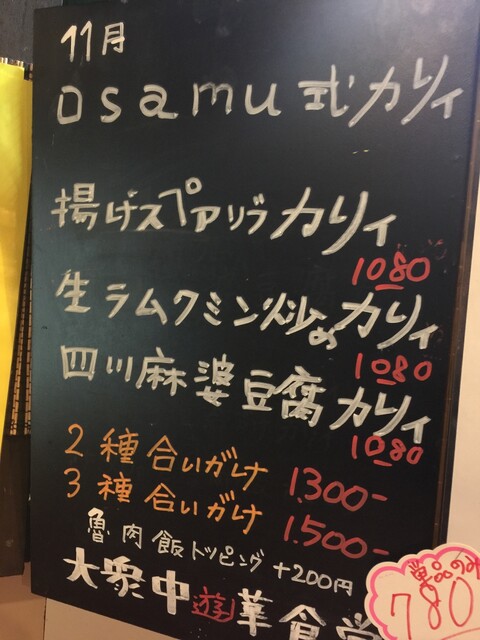 11月
osamu式カリィ
揚げスペアリブカリィ
1080
生ラムクミン炒めカリィ
1080
四川麻婆豆腐カリィ
1080
2種合いがけ 1.300-
3種合いがけ 1.500-
魯肉飯トッピング +200円
大衆中遊華食堂
単品のみ
780